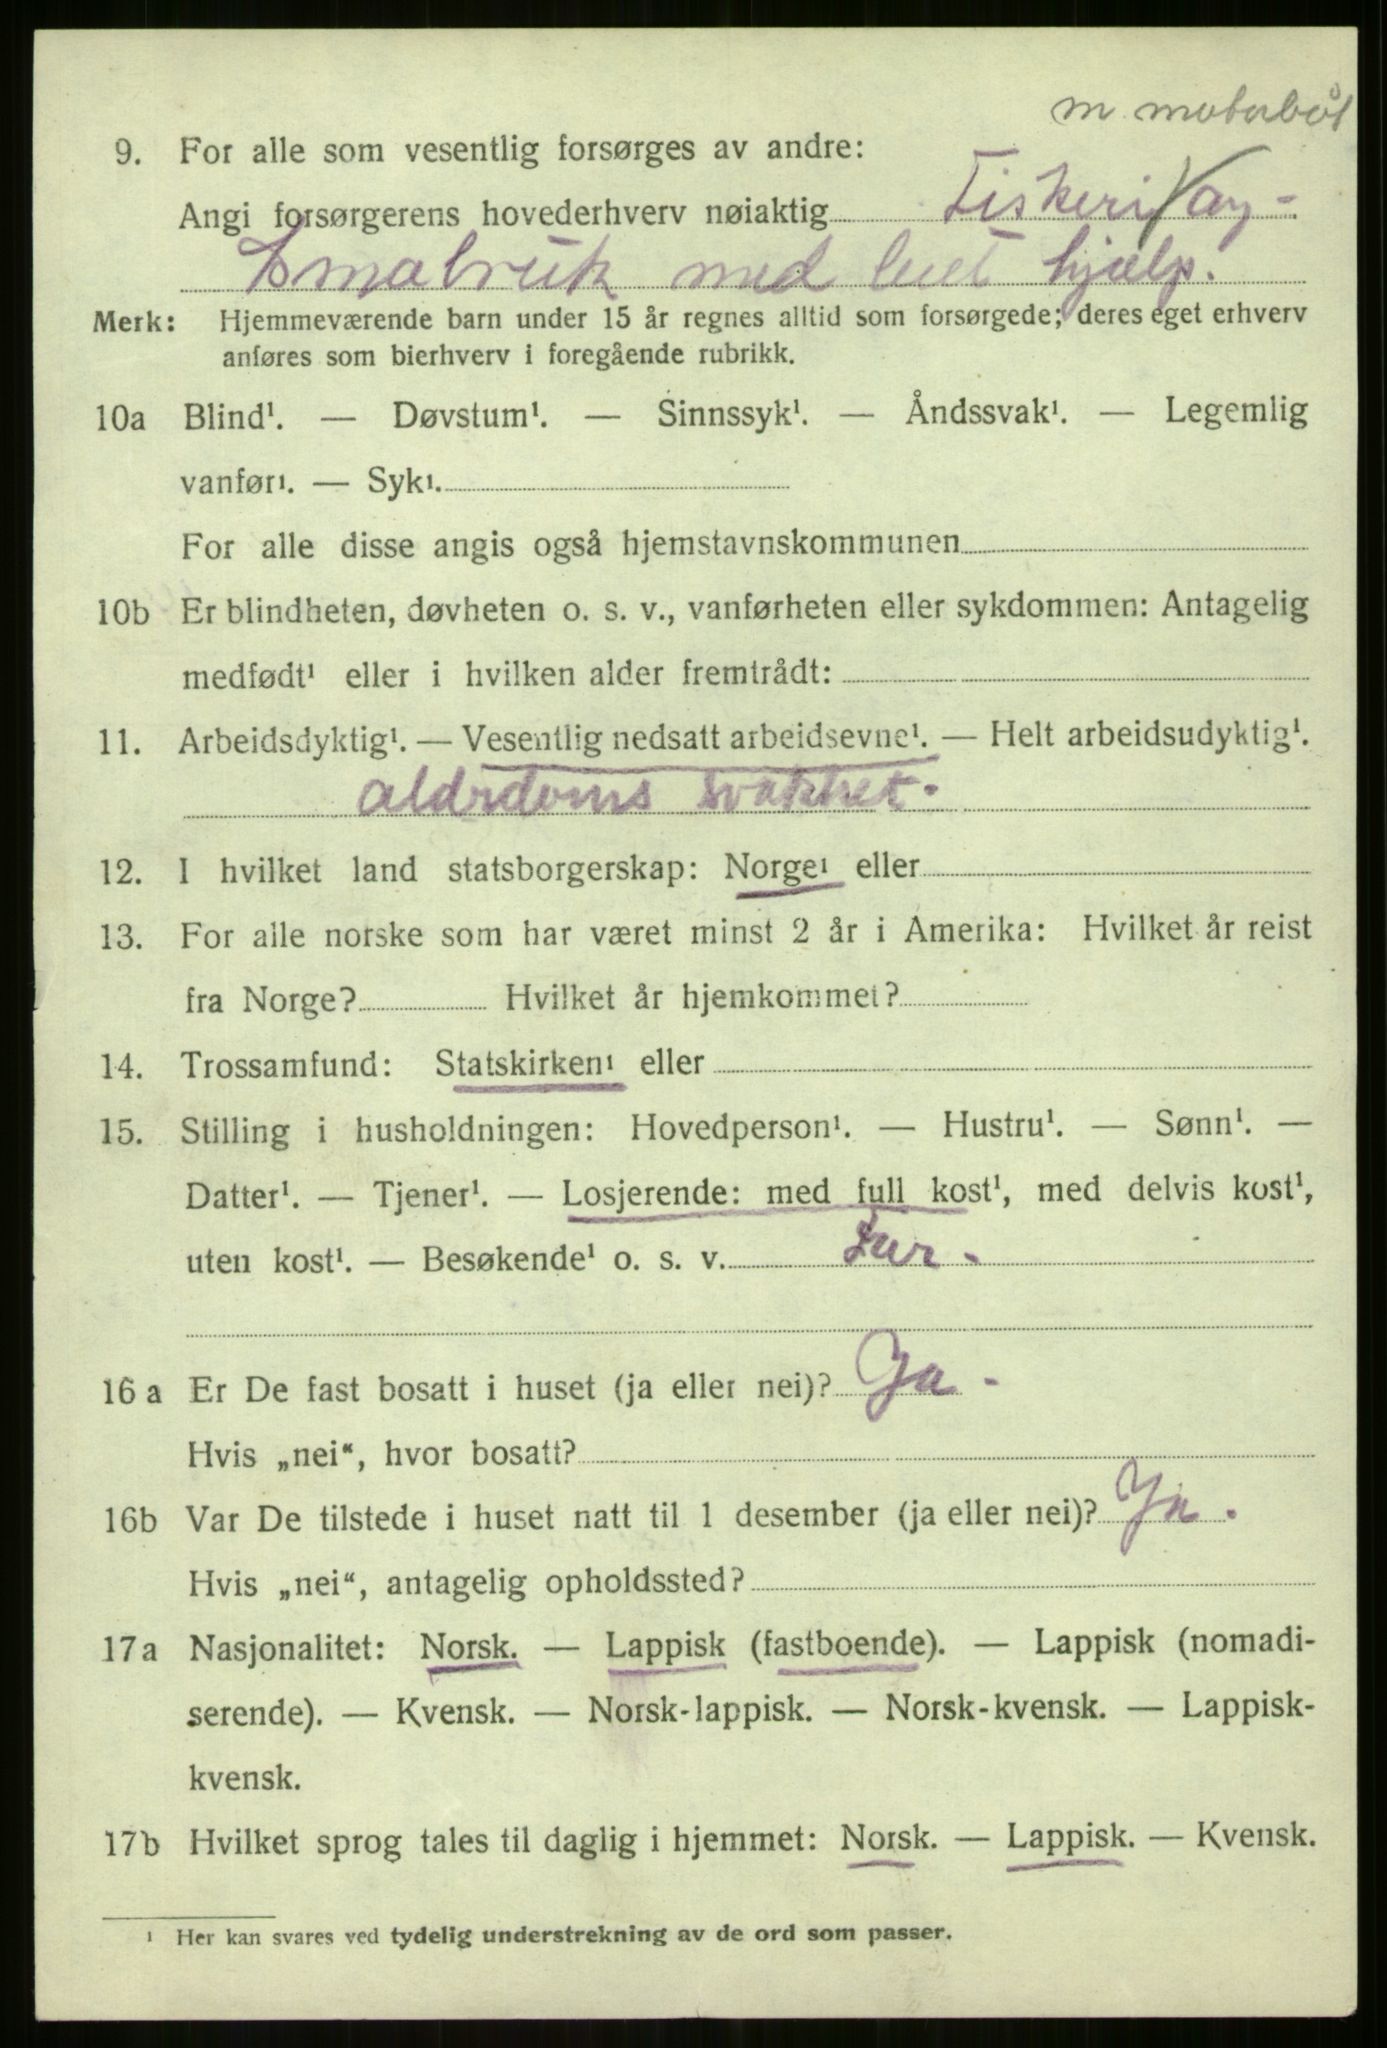 m. motorbåt
9. For alle som vesentlig forsørges av andre:
Angi forsørgerens hovederhverv nøiaktig Fiskeri og
Smabruk med leiet hjælp.
Merk: Hjemmeværende barn under 15 år regnes alltid som forsørgede; deres eget erhverv
anføres som bierhverv i foregående rubrikk.
10a Blind¹. — Døvstum¹. — Sinnssyk¹. — Åndssvak¹. — Legemlig
vanfør¹. — Syk¹.
For alle disse angis også hjemstavnskommunen
10b Er blindheten, døvheten o. s. v., vanførheten eller sykdommen: Antagelig
medfødt¹ eller i hvilken alder fremtrådt:
11. Arbeidsdyktig¹. — Vesentlig nedsatt arbeidsevne¹. — Helt arbeidsudyktig¹.
aldrdoms svakhet.
12. I hvilket land statsborgerskap: Norge¹ eller
13. For alle norske som har været minst 2 år i Amerika: Hvilket år reist
fra Norge? Hvilket år hjemkommet?
14. Trossamfund: Statskirken¹ eller
15. Stilling i husholdningen: Hovedperson¹. — Hustru¹. — Sønn¹. —
Datter¹. — Tjener¹. — Losjerende: med full kost¹, med delvis kost¹,
uten kost¹. — Besøkende¹ o. s. v.
16 a Er De fast bosatt i huset (ja eller nei)? Ja -
Hvis „nei“, hvor bosatt?
16b Var De tilstede i huset natt til 1 desember (ja eller nei)? Ja.
Hvis „nei“, antagelig opholdssted?
17a Nasjonalitet: Norsk. — Lappisk (fastboende). — Lappisk (nomadi-
serende). — Kvensk. — Norsk-lappisk. — Norsk-kvensk. — Lappisk-
kvensk.
17b Hvilket sprog tales til daglig i hjemmet: Norsk. — Lappisk. — Kvensk.
¹ Her kan svares ved tydelig understrekning av de ord som passer.